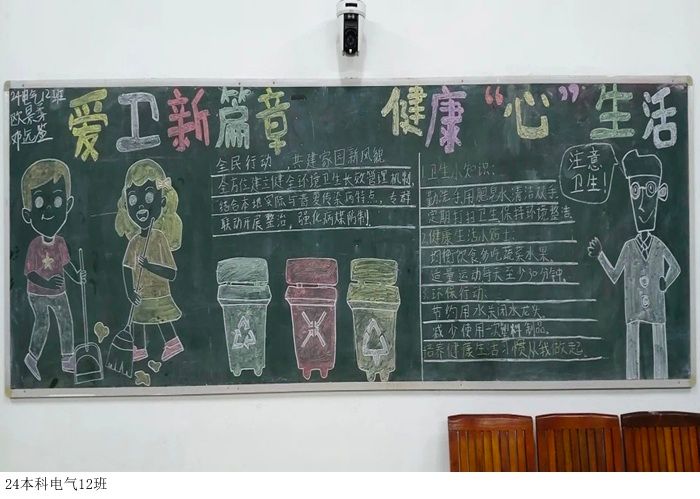 24电气12班
爱卫新篇章 健康“心”生活
全民行动 共建家园新风貌
全方位建立健全环境卫生长效管理机制,
结合本地实际与春夏传染病特点,专群
联动开展整治,强化病媒防制.
1.卫生小知识:
勤洗手用肥皂水清洁双手
定期打扫卫生保持环境整洁
2.健康生活小贴士:
均衡饮食多吃蔬菜水果.
适量运动每天至少30分钟.
3.环保行动.
节约用水关闭水龙头.
减少使用一次塑料制品.
培养健康生活习惯从我做起.
注意
卫生!
24本科电气12班